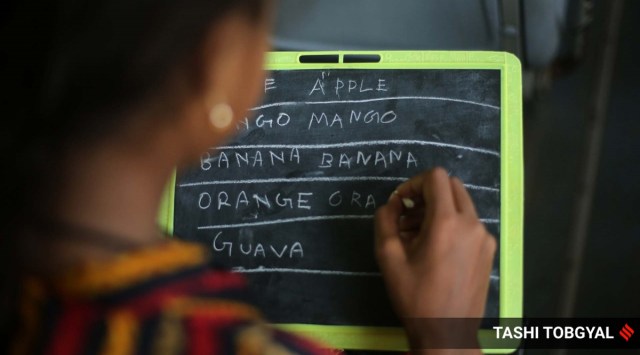 E APPLE
NGO MANGO
BANANA BANANA
ORANGE ORA
GUAVA
TASHI TOBGYAL